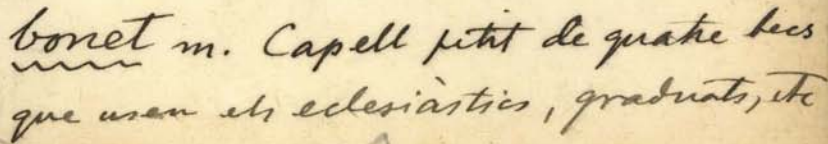 bonet m. Capell petit de quatre becs
que usen els eclesiàstics, graduats, etc